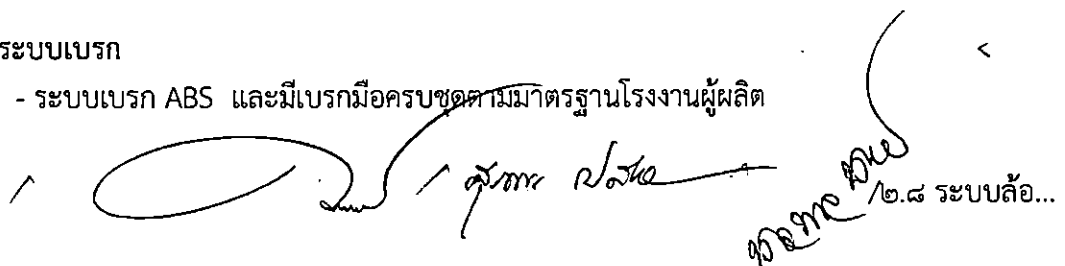 ระบบเบรก
- ระบบเบรก ABS และมีเบรกมือครบชุดตามมาตรฐานโรงงานผู้ผลิต
/๒.๘ ระบบล้อ...